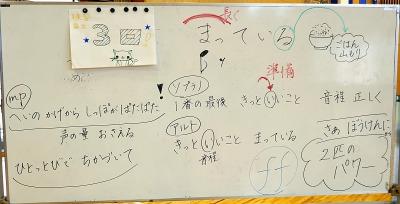 3回
長く
まっている
ごはん
山もり
mp
へいの かげから しっぽが ぱたぱた
声の量 おさえる
ひとっとびで ちかづいて
!
ソプラノ
準備
1番の最後 きっと いいこと 音程 正しく
アルト
きっと いいこと まっている
音程
ff
さあ ぼうけんに
2匹の
パワー